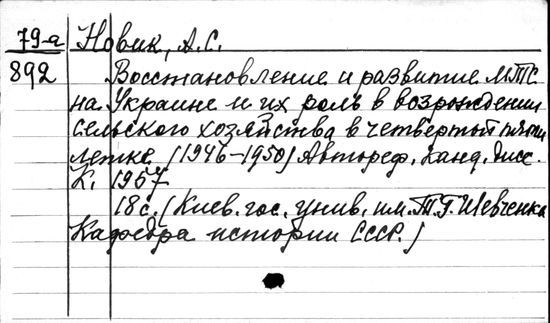 79-а Новик, А.С.
892 Восстановление и развитие МТС
на Украине и их роль в возрождении
сельского хозяйства в четвертой пяти
летке. (1946-1950) Автореф. канд. дисс.
К. 1957
18 с. (Киев. гос. унив. им. Т.Г. Шевченка
Кафедра истории СССР.)